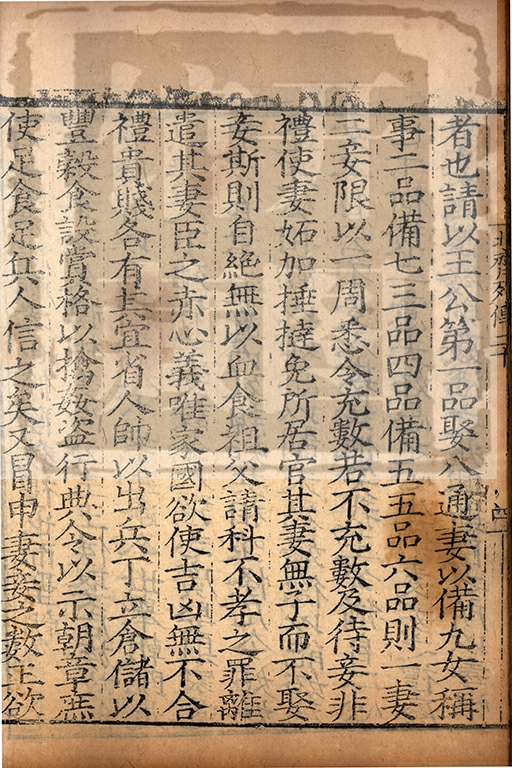 者也請以王公第一品娶八通妻以備九女稱
事二品備七三品四品備五五品六品則一妻
二妾限以一周悉令充數若不充數及待妾非
禮使妻妬加捶撻免所居官其妻無子而不娶
妾斯則自絕無以血食祖父請科不孝之罪離
遣其妻臣之赤心義唯家國欲使吉凶無不合
禮貴賤各有其宜省人帥以出兵丁立倉儲以
豐穀食設賞格以擒姦盜行典令以示朝章庶
使足食足兵人信之矣又冒申妻妾之數正欲